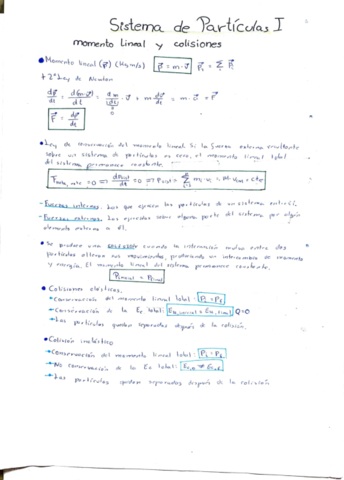 Sistema de Partículas I
momento lineal y colisiones
• Momento lineal (p⃗) (kg·m/s) p⃗ = m·v⃗
2ª Ley de Newton
• Ley de conservación del momento lineal. Si la fuerza externa resultante
sobre un sistema de partículas es cero, el momento lineal total
del sistema permanece constante.
- Fuerzas internas. Las que ejercen las partículas de un sistema entre sí.
- Fuerzas externas. Las ejercidas sobre alguna parte del sistema por algún
elemento externo a él.
• Se produce una colisión cuando la interacción mutua entre dos
partículas altera sus movimientos, produciendo un intercambio de momento
y energía. El momento lineal del sistema permanece constante.
P inicial = P final
• Colisiones elásticas.
• Conservación del momento lineal total:
• Conservación de la Ec total: Q=0
• Las partículas quedan separadas después de la colisión.
• Colisión inelástica
• Conservación del momento lineal total:
• No conservación de la Ec total:
• Las partículas quedan separadas después de la colisión